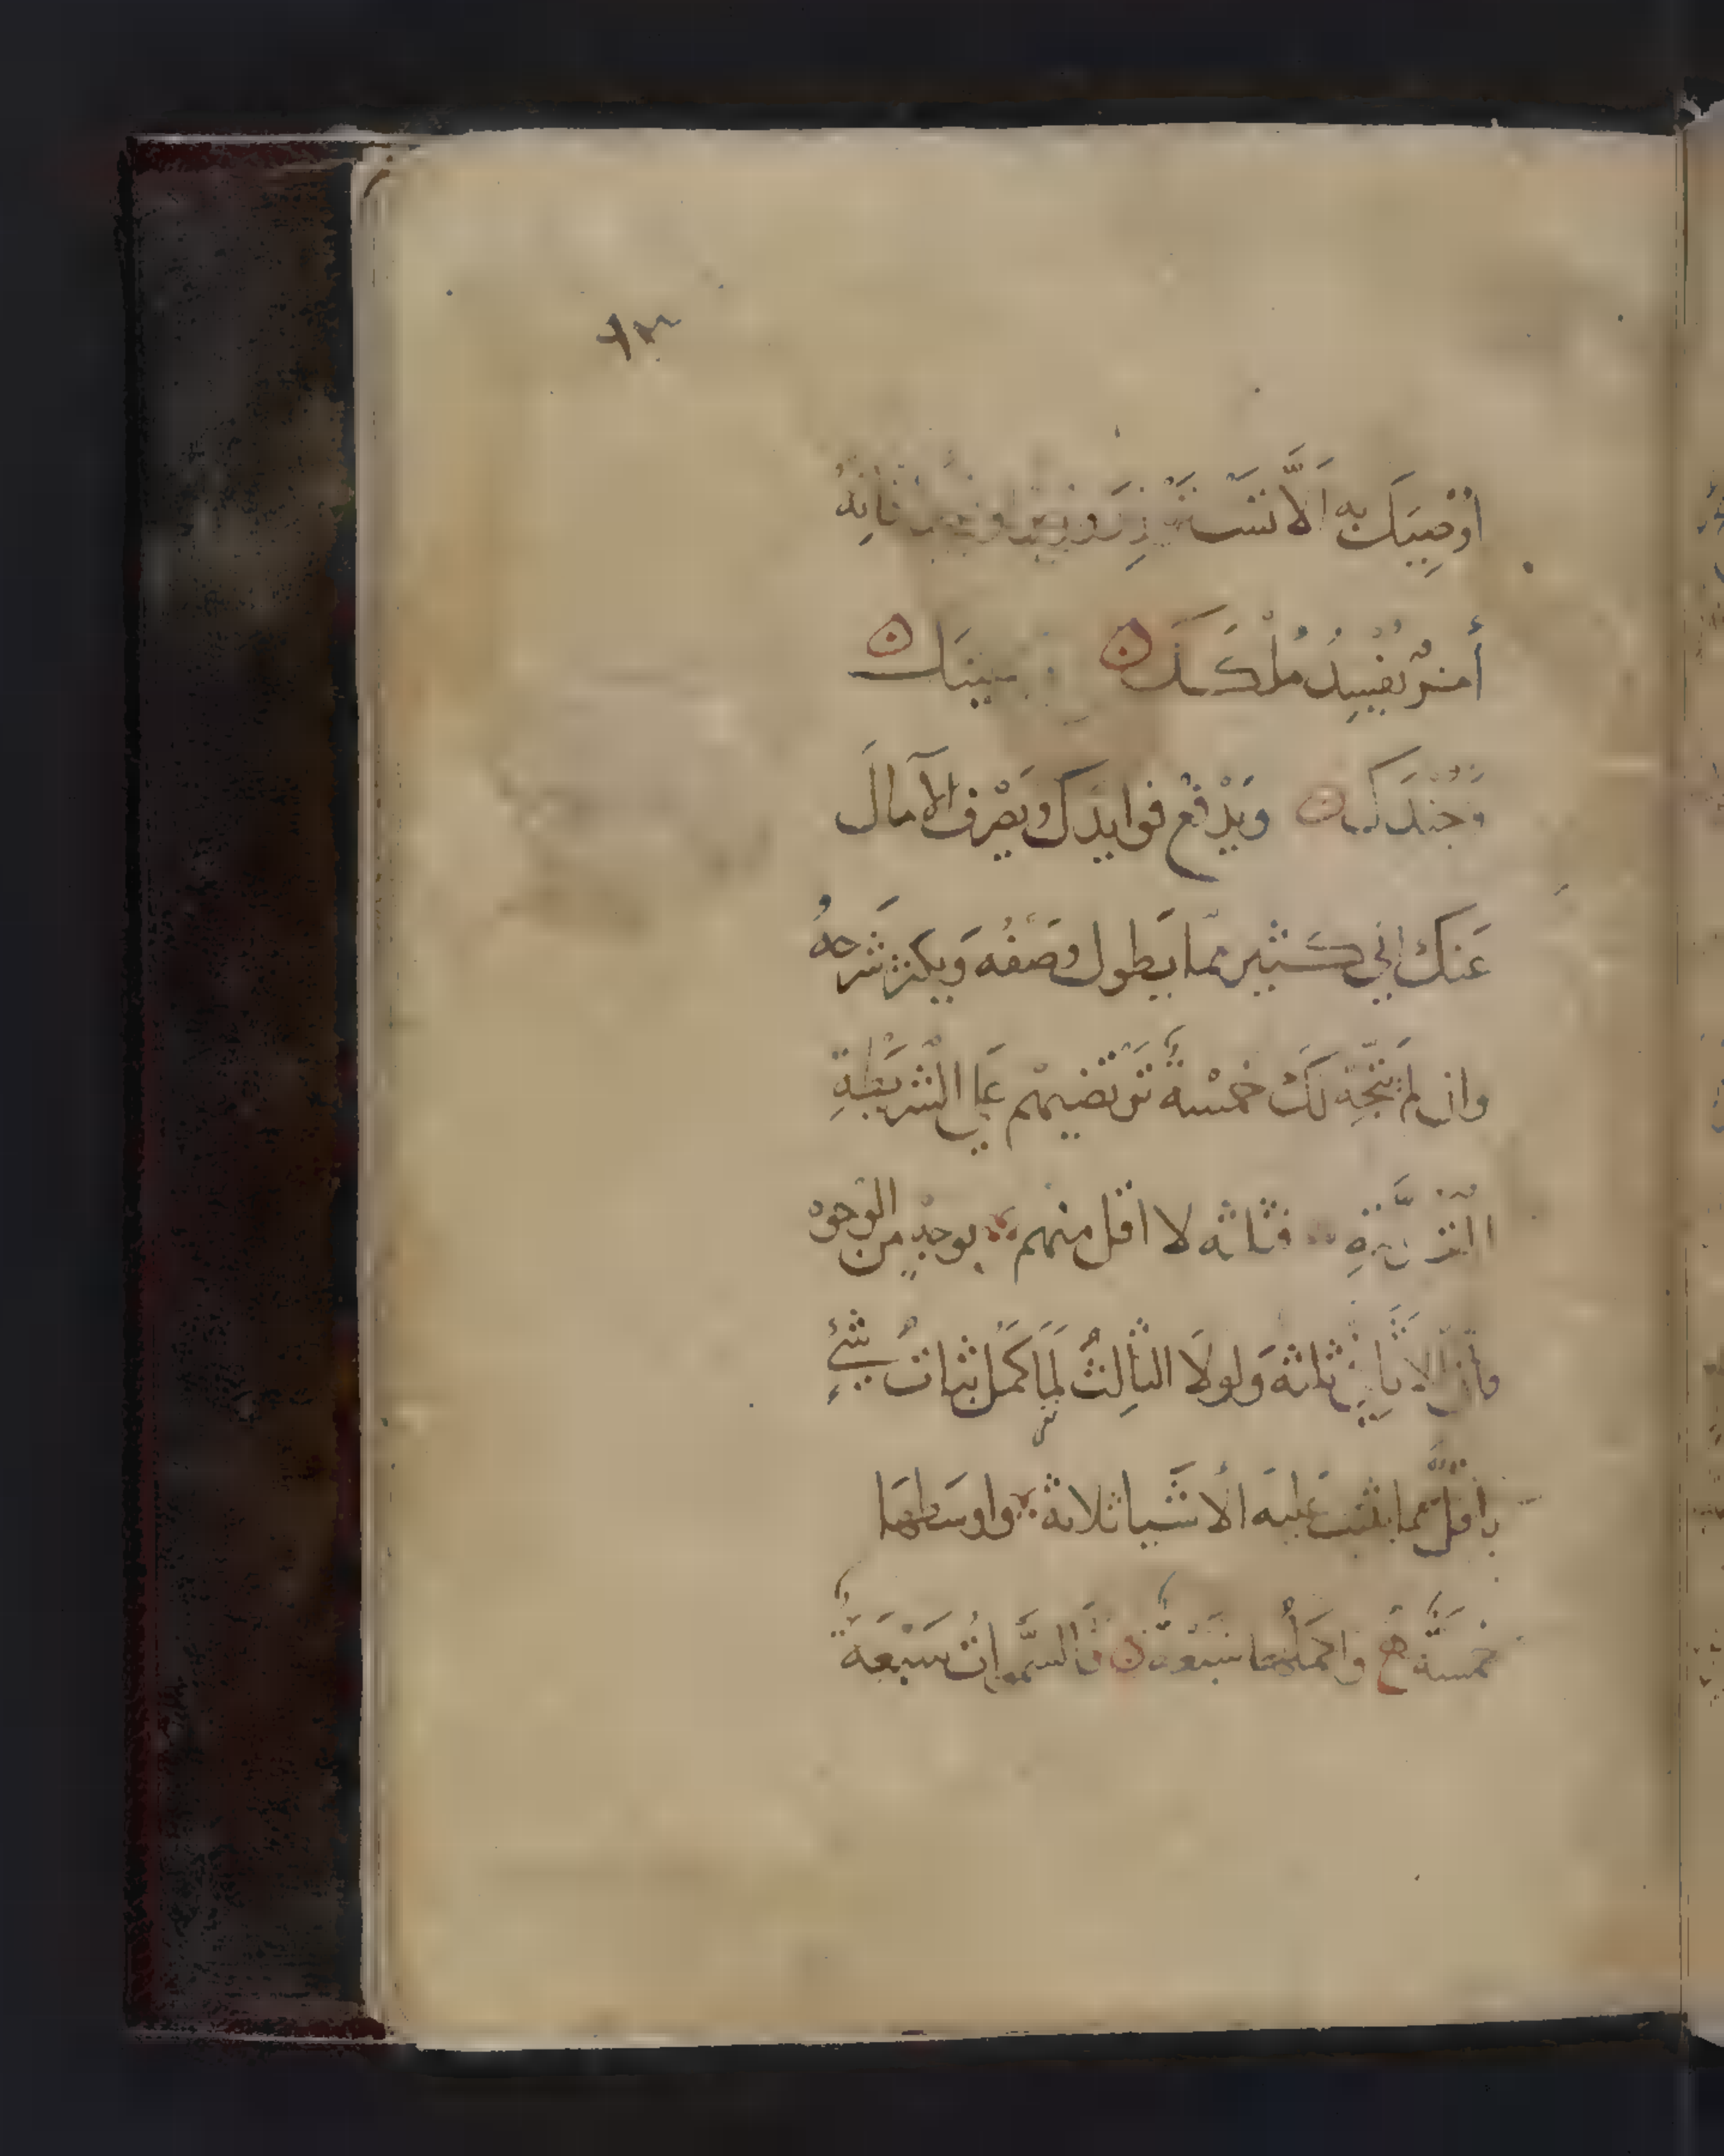 اوْصِيَك به الَّا تَسْتَوْزِرَ وزيرًا وَاحِدًا فَانِهُ
أمرٌ يُفسِدُ مُلْكَكَ
وَجُنْدَك وَيدْفع فوايدَك ويَصْرِف الآمالَ
عَنكَ الي كَثير ممّا يَطول وصَفُه وَيكثر شَرحهُ
وان لم يَتّجه لَكَ خمْسة تَرتضيهم عَلي الشريْطةِ
فثلثه لا اقل منهم بوجهٍ من الوجوه
فأنّ الاثَافيَ ثلثة وَلولَا الثالثُ لَما كمل ثباتُ شيءٍ
فأقلُّ مما يثبت عليه الأشَيا ثلاثة واوسَطهَا
خمسَة واكمَلُها سَبْعة فَالسَّموات سَبْعَةٌ